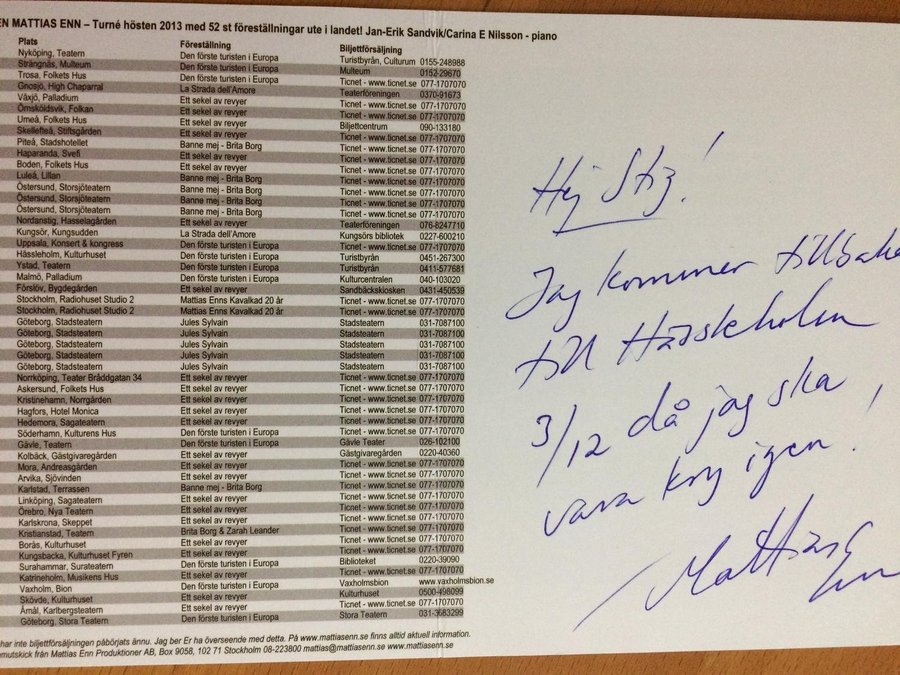 EN MATTIAS ENN – Turné hösten 2013 med 52 st föreställningar ute i landet! Jan-Erik Sandvik/Carina E Nilsson - piano
Plats Föreställning Biljettförsäljning
Nyköping, Teatern Den första turisten i Europa Turistbyrån, Culturum 0155-248988
Strängnäs, Multeum Den förste turisten i Europa Multeum 0152-29670
Trosa, Folkets Hus Den förste turisten i Europa Ticnet - www.ticnet.se 077-1707070
Gnosjö, High Chaparral La Strada dell'Amore Teaterföreningen 0370-91673
Växjö, Palladium Ett sekel av revyer Ticnet - www.ticnet.se 077-1707070
Örnsköldsvik, Folkan Ett sekel av revyer Ticnet - www.ticnet.se 077-1707070
Umeå, Folkets Hus Ett sekel av revyer Biljettcentrum 090-133180
Skellefteå, Stiftsgården Ett sekel av revyer Ticnet - www.ticnet.se 077-1707070
Piteå, Stadshotellet Banne mej - Brita Borg Ticnet - www.ticnet.se 077-1707070
Haparanda, Svefi Ett sekel av revyer Ticnet - www.ticnet.se 077-1707070
Boden, Folkets Hus Ett sekel av revyer Ticnet - www.ticnet.se 077-1707070
Luleå, Lillan Banne mej - Brita Borg Ticnet - www.ticnet.se 077-1707070
Östersund, Storsjöteatern Banne mej - Brita Borg Ticnet - www.ticnet.se 077-1707070
Östersund, Storsjöteatern Banne mej - Brita Borg Ticnet - www.ticnet.se 077-1707070
Östersund, Storsjöteatern Banne mej - Brita Borg Ticnet - www.ticnet.se 077-1707070
Nordanstig, Hasselagården Ett sekel av revyer Teaterföreningen 076-8247710
Kungsör, Kungsudden La Strada dell'Amore Kungsörs bibliotek 0227-600210
Uppsala, Konsert & kongress Den förste turisten i Europa Ticnet - www.ticnet.se 077-1707070
Hässleholm, Kulturhuset Den förste turisten i Europa Turistbyrån 0451-267300
Ystad, Teatern Den förste turisten i Europa Turistbyrån 0411-577681
Malmö, Palladium Den förste turisten i Europa Kulturcentralen 040-103020
Förslöv, Bygdegården Ett sekel av revyer Sandbäckskiosken 0431-450539
Stockholm, Radiohuset Studio 2 Mattias Enns Kavalkad 20 år Ticnet - www.ticnet.se 077-1707070
Stockholm, Radiohuset Studio 2 Mattias Enns Kavalkad 20 år Ticnet - www.ticnet.se 077-1707070
Göteborg, Stadsteatern Jules Sylvain Stadsteatern 031-7087100
Göteborg, Stadsteatern Jules Sylvain Stadsteatern 031-7087100
Göteborg, Stadsteatern Jules Sylvain Stadsteatern 031-7087100
Göteborg, Stadsteatern Jules Sylvain Stadsteatern 031-7087100
Göteborg, Stadsteatern Jules Sylvain Stadsteatern 031-7087100
Norrköping, Teater Bråddgatan 34 Ett sekel av revyer Ticnet - www.ticnet.se 077-1707070
Askersund, Folkets Hus Ett sekel av revyer Ticnet - www.ticnet.se 077-1707070
Kristinehamn, Norrgården Ett sekel av revyer Ticnet - www.ticnet.se 077-1707070
Hagfors, Hotel Monica Ett sekel av revyer Ticnet - www.ticnet.se 077-1707070
Hedemora, Sagateatern Ett sekel av revyer Ticnet - www.ticnet.se 077-1707070
Söderhamn, Kulturens Hus Den förste turisten i Europa Ticnet - www.ticnet.se 077-1707070
Gävle, Teatern Den förste turisten i Europa Gävle Teater 026-102100
Kolbäck, Gästgivaregården Ett sekel av revyer Gästgivaregården 0220-40360
Mora, Andreasgården Ett sekel av revyer Ticnet - www.ticnet.se 077-1707070
Arvika, Sjövinden Ett sekel av revyer Ticnet - www.ticnet.se 077-1707070
Karlstad, Terrassen Banne mej - Brita Borg Ticnet - www.ticnet.se 077-1707070
Linköping, Sagateatern Ett sekel av revyer Ticnet - www.ticnet.se 077-1707070
Örebro, Nya Teatern Ett sekel av revyer Ticnet - www.ticnet.se 077-1707070
Karlskrona, Skeppet Ett sekel av revyer Ticnet - www.ticnet.se 077-1707070
Kristianstad, Teatern Brita Borg & Zarah Leander Ticnet - www.ticnet.se 077-1707070
Borås, Kulturhuset Ett sekel av revyer Ticnet - www.ticnet.se 077-1707070
Kungsbacka, Kulturhuset Fyren Ett sekel av revyer Biblioteket 0220-39090
Surahammar, Surateatern Den förste turisten i Europa Ticnet - www.ticnet.se 077-1707070
Katrineholm, Musikens Hus Ett sekel av revyer Vaxholmsbion www.vaxholmsbion.se
Vaxholm, Bion Den förste turisten i Europa Kulturhuset 0500-498099
Skövde, Kulturhuset Ett sekel av revyer Ticnet - www.ticnet.se 077-1707070
Åmål, Karlbergsteatern Ett sekel av revyer Stora Teatern 031-3683299
Göteborg, Stora Teatern Den förste turisten i Europa
har inte biljettförsäljningen påbörjats ännu. Jag ber Er ha överseende med detta. På www.mattiasenn.se finns alltid aktuell information.
mutskick från Mattias Enn Produktioner AB, Box 9058, 102 71 Stockholm 08-223800 mattias@mattiasenn.se www.mattiasenn.se
Hej Stig!
Jag kommer tillbaka
till Hässleholm
3/12 då jag ska
vara kry igen!
/Mattias Enn